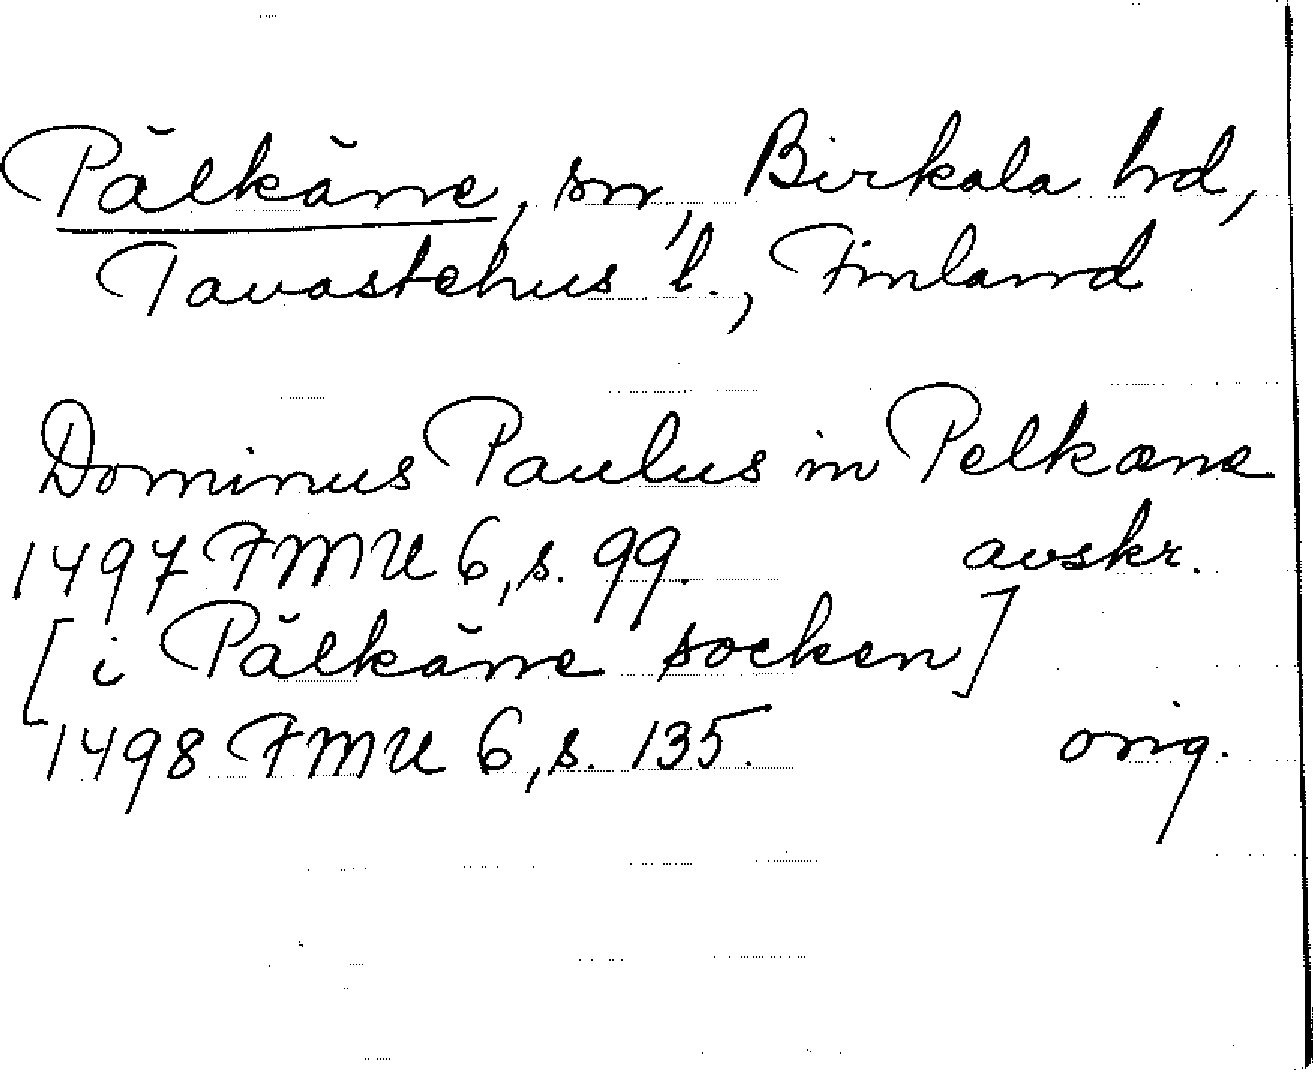 Pälkäne, sn, Birkala hd,
Tavastehus l., Finland
Dominus Paulus in Pelkæne
1497 FMU 6, s. 99. avskr.
[i Pälkäne socken]
1498 FMU 6, s. 135. orig.